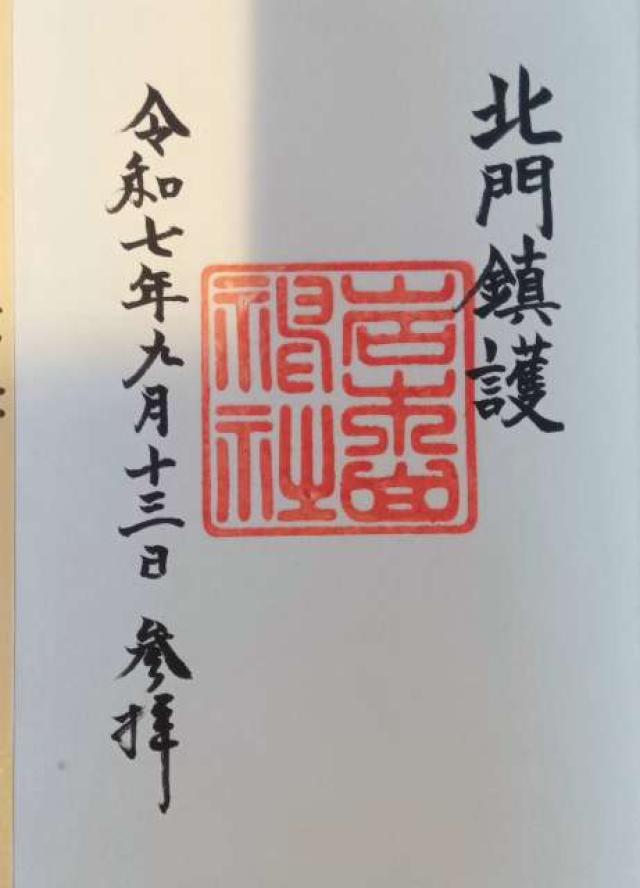 北門鎮護
岩木山
神社
令和七年九月十三日 参拝